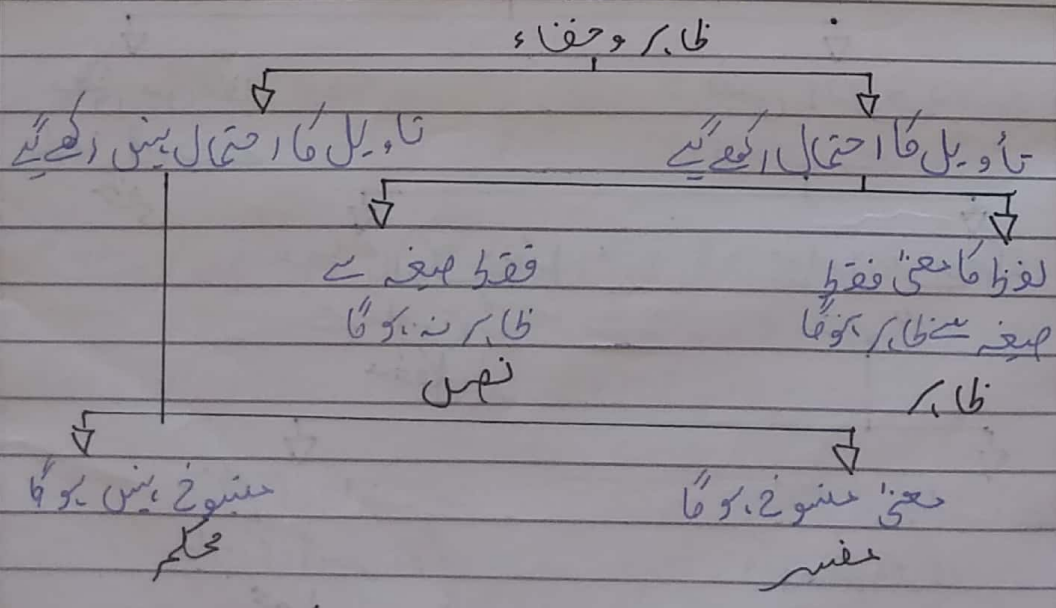 ظاہر و خفاء
تأویل کا احتمال رکھے گیے
تاویل کا احتمال نہیں رکھے گیے
لفظ کا معنیٰ فقط
صیغہ سے ظاہر ہوگا
ظاہر
فقط صیغہ سے
ظاہر نہ ہوگا
نص
معنیٰ منسوخ ہوگا
مفسر
منسوخ نہیں ہوگا
محکم